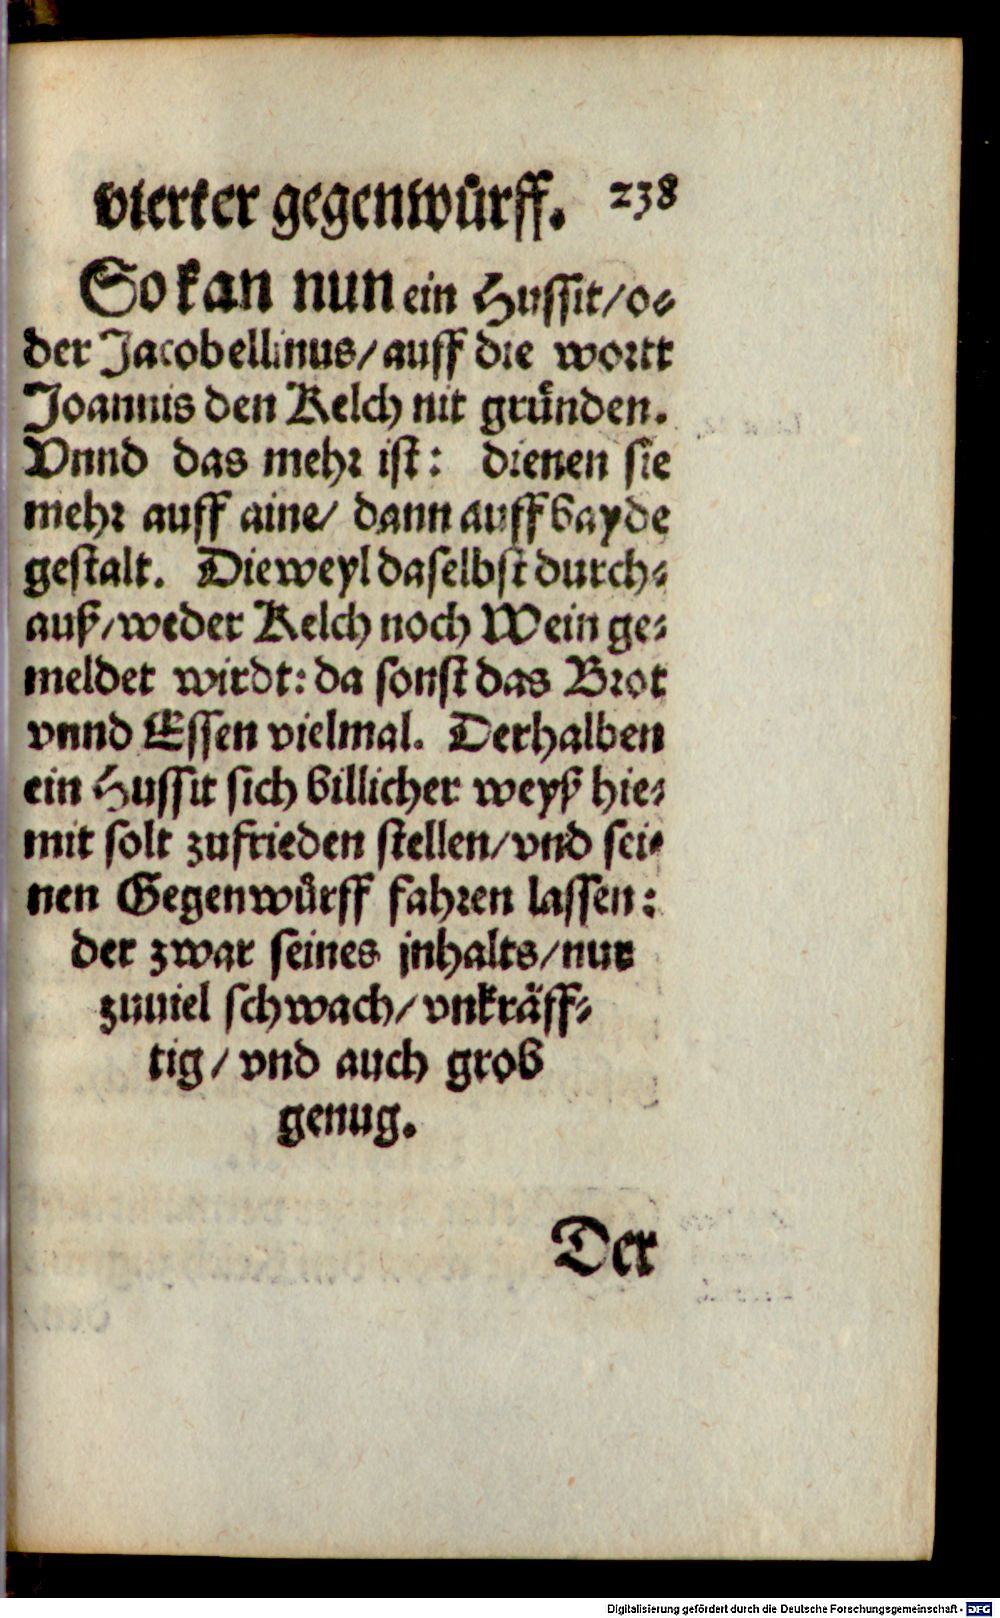 vierter gegenwůrff. 238
So kan nun ein Hussit/o-
der Jacobellinus/auff die wortt
Joannis den Kelch nit gründen.
Vnnd das mehr ist: dienen sie
mehr auff aine/ dann auff bayde
gestalt. Dieweyl daselbst durch-
auß/weder Kelch noch Wein ge-
meldet wirdt: da sonst das Brot
vnnd Essen vielmal. Derhalben
ein Hussit sich billicher weyß hie-
mit solt zufrieden stellen/vnd sei-
nen Gegenwůrff fahren lassen:
der zwar seines jnhalts/nur
zuuiel schwach/vnkräff-
tig/vnd auch grob
genug.
Der
Digitalisierung gefördert durch die Deutsche Forschungsgemeinschaft - DFG